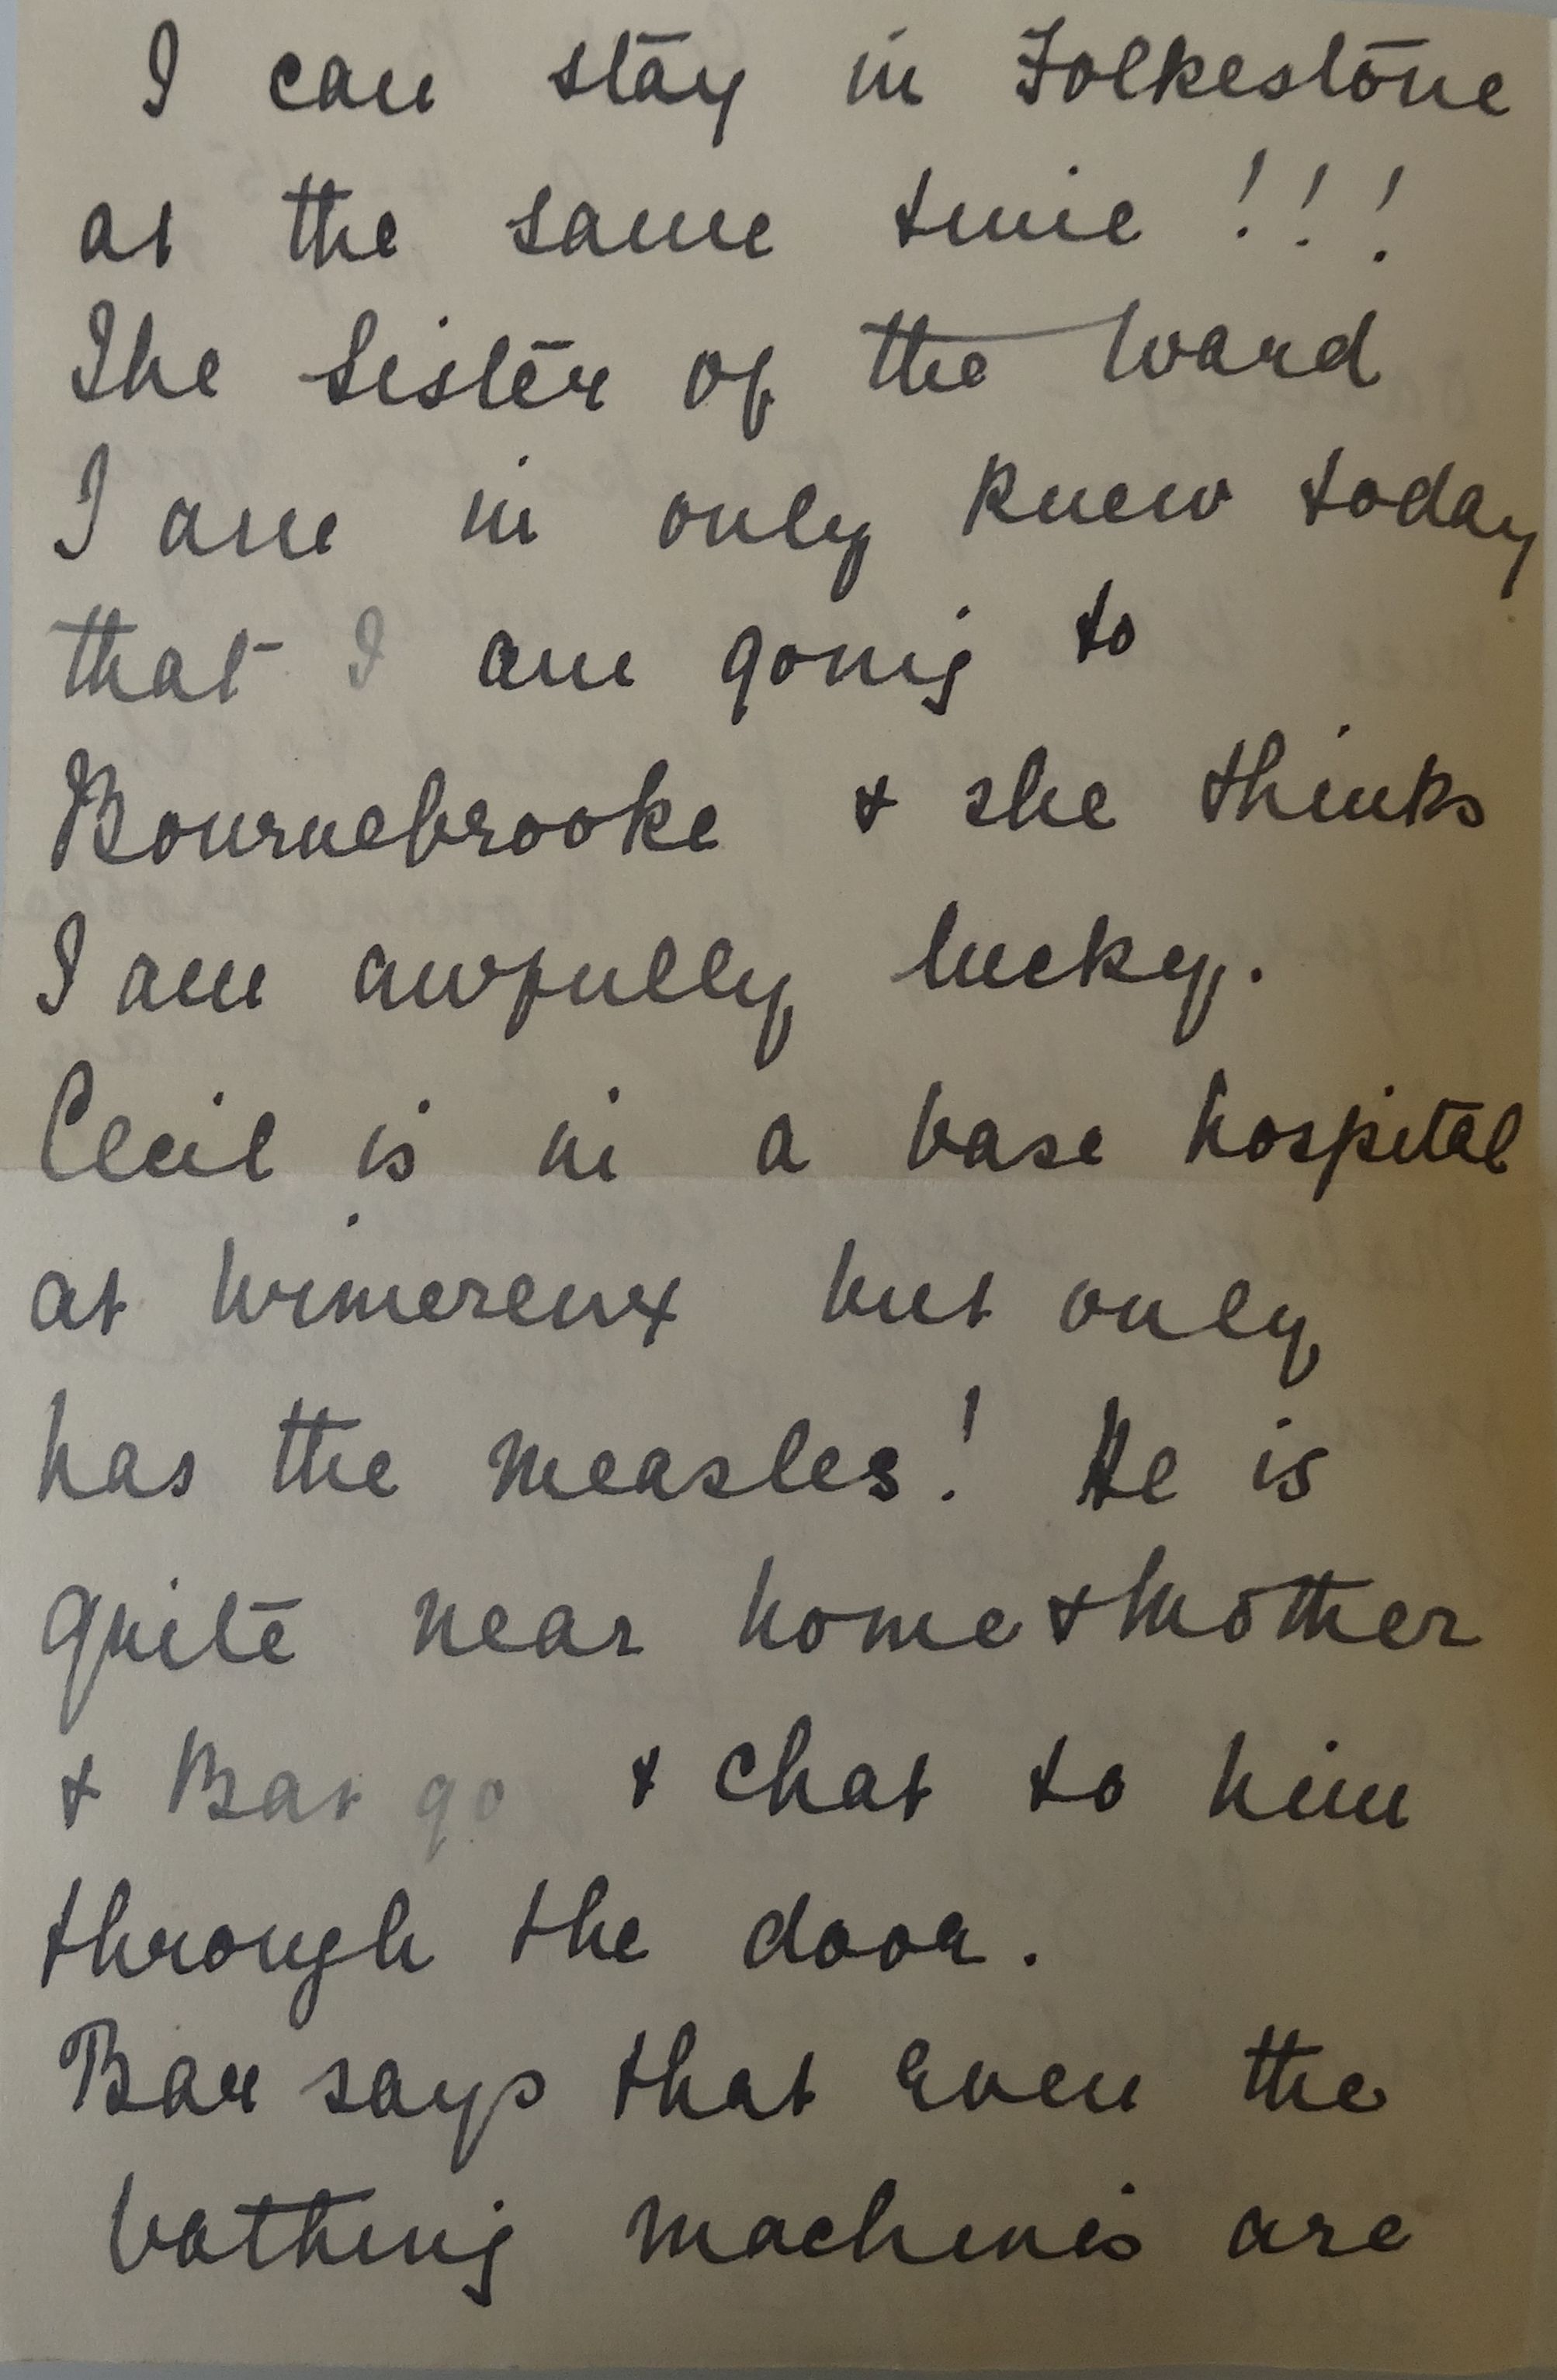 I can stay in Folkestone
at the same time !!!
The Sister of the Ward
I am in only knew today
that I am going to
Bournebrooke & she thinks
I am awfully lucky.
Cecil is in a base hospital
at Wimereux but only
has the measles! He is
quite near home & Mother
& Bar go & chat to him
through the door.
Bar says that even the
bathing machines are